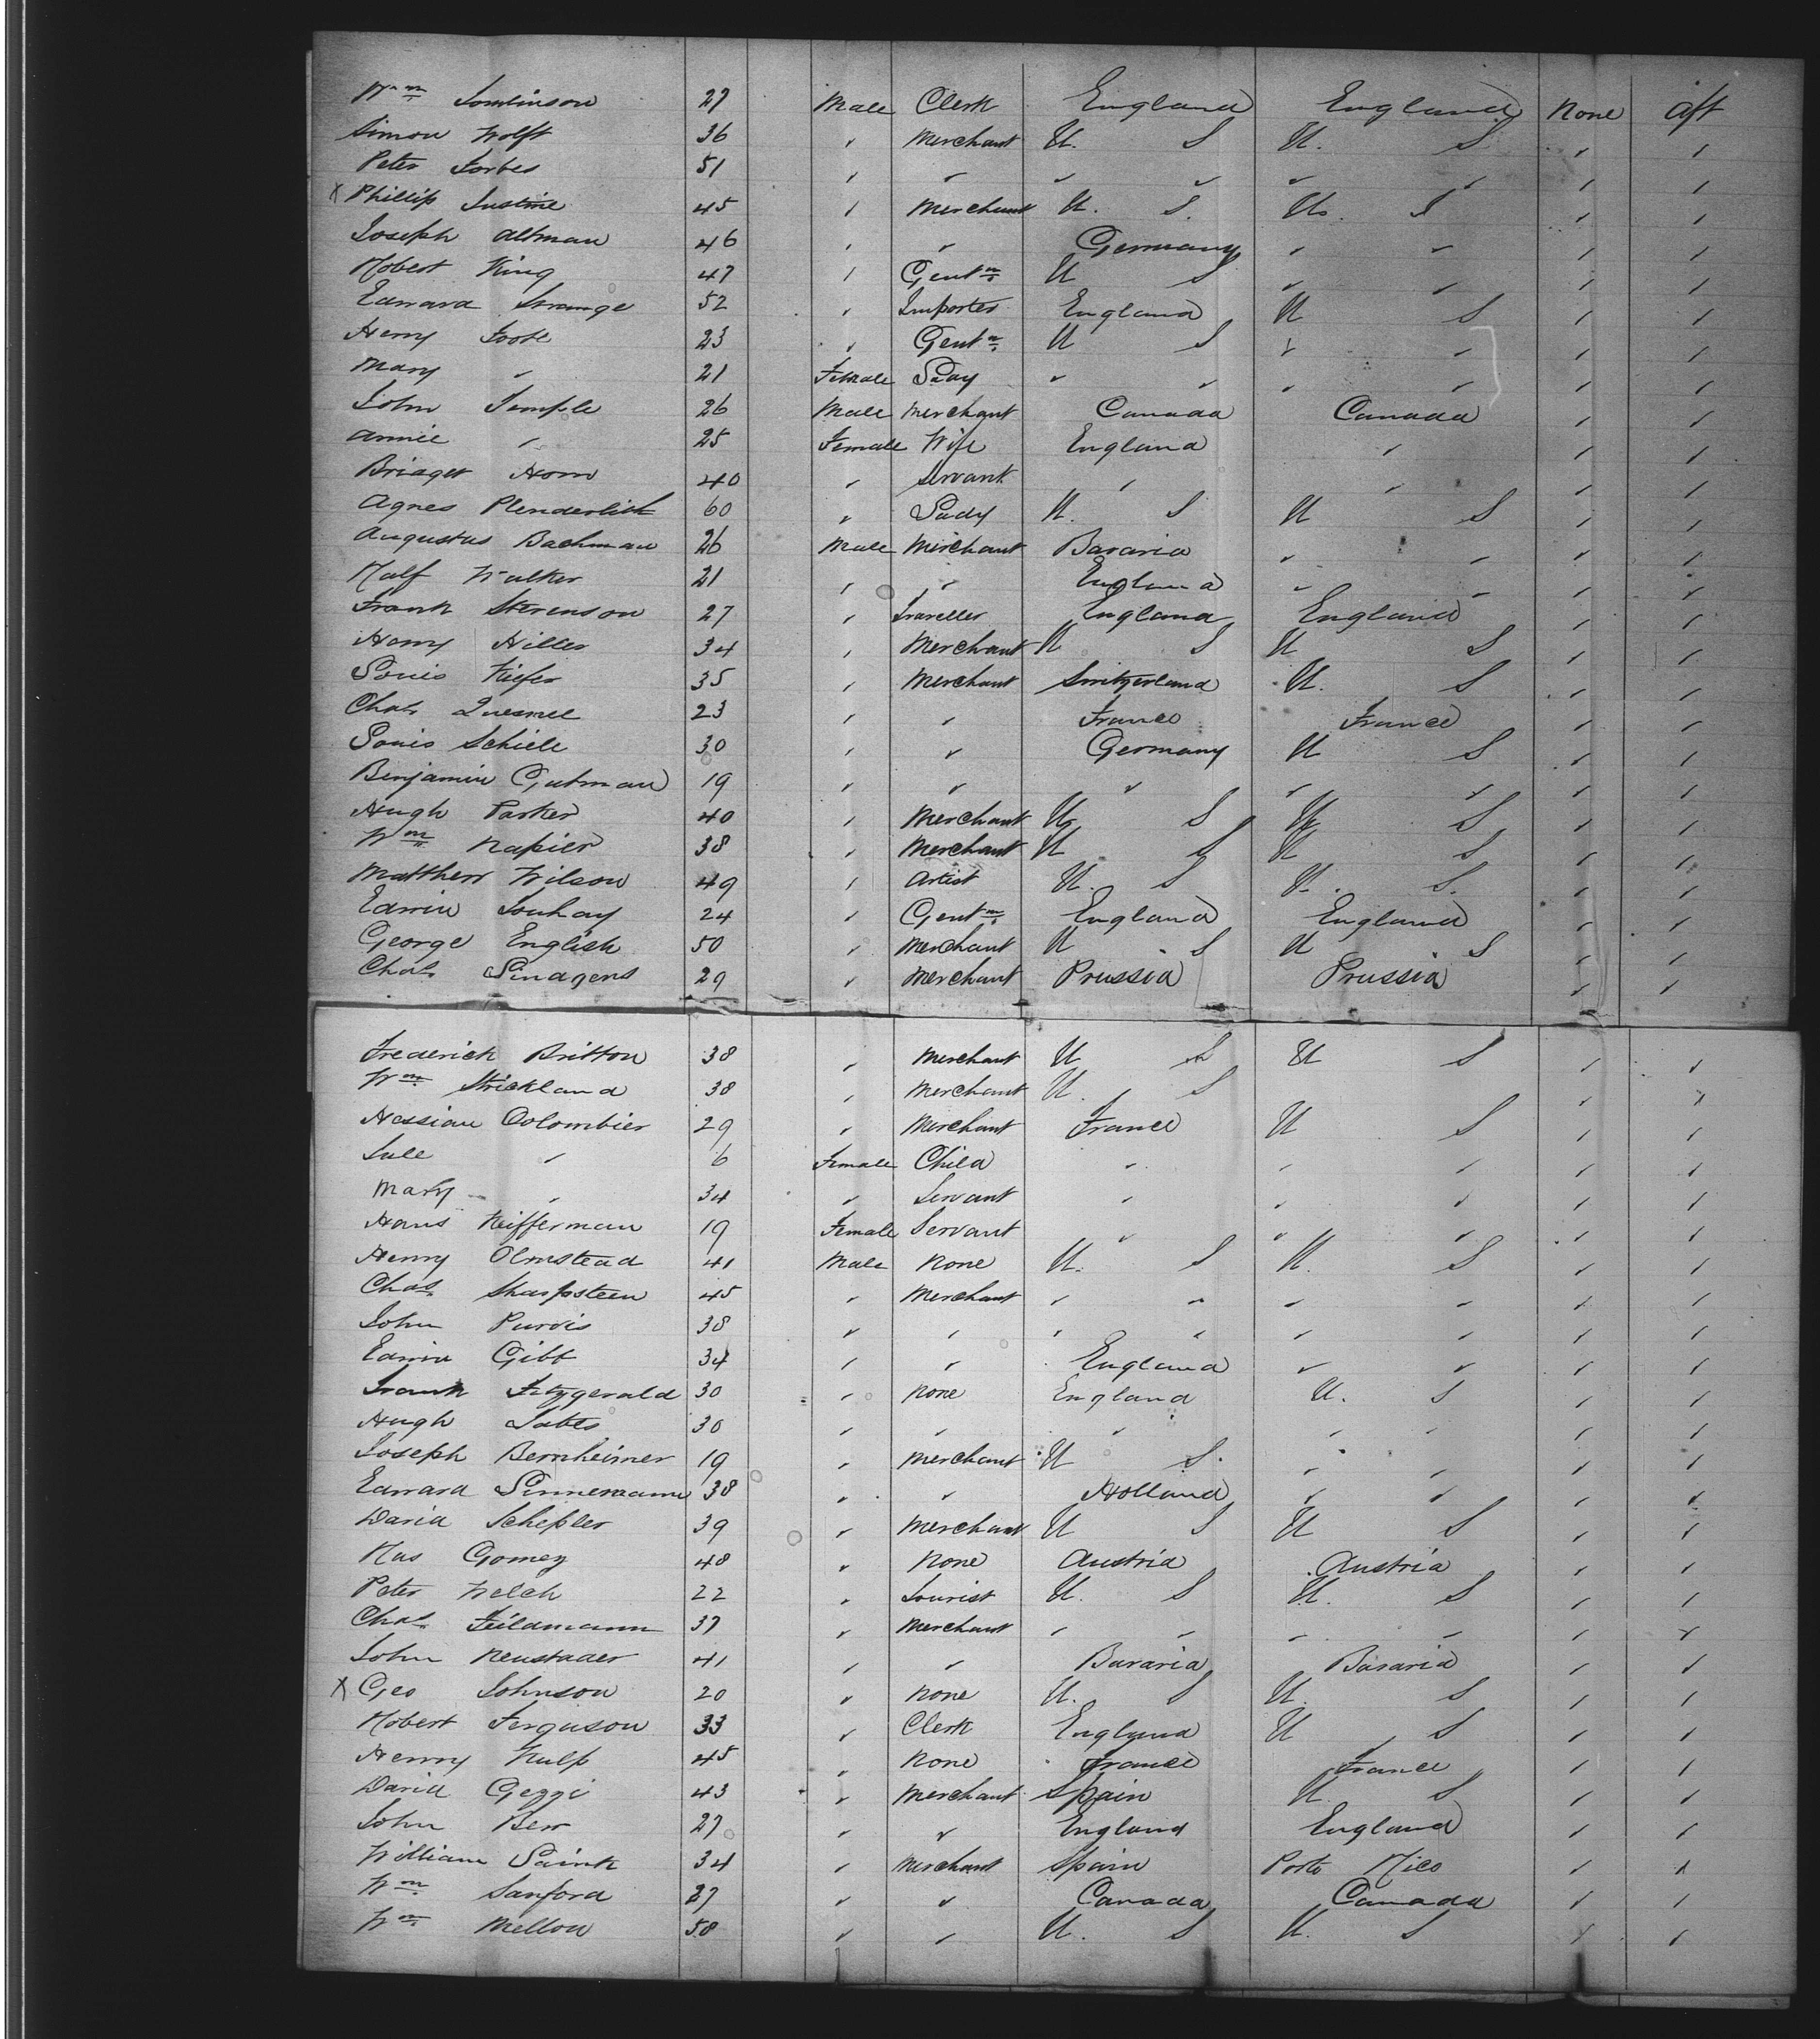 Wm Tomlinson 27 Male Clerk England England None Aft
Simon Wolff 36 " Merchant U. S U. S " "
Peter Forbes 51 " " " " " " " "
X Phillip Justine 45 " Merchant U. S. U. S " "
Joseph Altman 46 " " Germany " " " "
Robert King 47 " Gentn U S " " " "
Edward Strange 52 " Importer England U S " "
Henry Foote 23 " Gentn U S " " " "
Mary " 21 Female Lady " " " " " "
John Temple 26 Male Merchant Canada Canada " "
Annie " 25 Female Wife England " " "
Bridget Horn 40 " Servant " " " "
Agnes Plenderlith 60 " Lady U. S U S " "
Augustus Bachman 26 Male Merchant Bavaria " " " "
Ralf Walker 21 " " England " " " "
Frank Stevenson 27 " Traveller England England " "
Harry Hiller 34 " Merchant U S U S " "
Louis Kiefer 35 " Merchant Switzerland U. S " "
Chas Quesnel 23 " " France France " "
Louis Schiele 30 " " Germany U S " "
Benjamin Gutman 19 " " " " " " "
Hugh Parker 40 " Merchant U S U S " "
Wm Napier 38 " Merchant U S U S " "
Matthew Wilson 49 " Artist U. S U. S. " "
Edwin Souhay 24 " Gentm England England " "
George English 50 " Merchant U S U S " "
Chas Lindgens 29 " Merchant Prussia Prussia " "
Frederick Britton 38 " Merchant U S U S " "
Wm Strickland 38 " Merchant U. S " "
Hessian Colombier 29 " Merchant France U S " "
Sale " 6 Female Child " " " " "
Mary " 34 " Servant " " " " "
Hans Keifferman 19 Female Servant " " " " "
Henry Olmstead 41 Male None U. S U. S " "
Chas Sharpsteen 45 " Merchant " " " " " "
John Purvis 38 " " " " " " " "
Edwin Gibb 34 " " England " " " "
Frank Fitzgerald 30 " None England U. S " "
Hugh 30 " " " " " " "
Joseph Bernheimer 19 " Merchant U S. " " " "
Edward Linnemann 38 " " Holland " " " "
David Schepler 39 " Merchant U S U S " "
Gomez 48 " None Austria Austria " "
Peter Welch 22 " Tourist U. S U. S " "
Chas Feildmann 37 " Merchant " " " " " "
John Neustader 41 " " Bavaria Bavaria " "
X Geo Johnson 20 " None U. S U. S " "
Robert Ferguson 33 " Clerk England U S " "
Henry Kulp 45 " None France France " "
David Gezzi 43 " Merchant Spain U. S " "
John Bew 27 " " England England " "
William Saink 34 " Merchant Spain Porto Rico " "
Wm Sanford 37 " " Canada Canada " "
Wm Mellon 58 " " U. S U. S " "